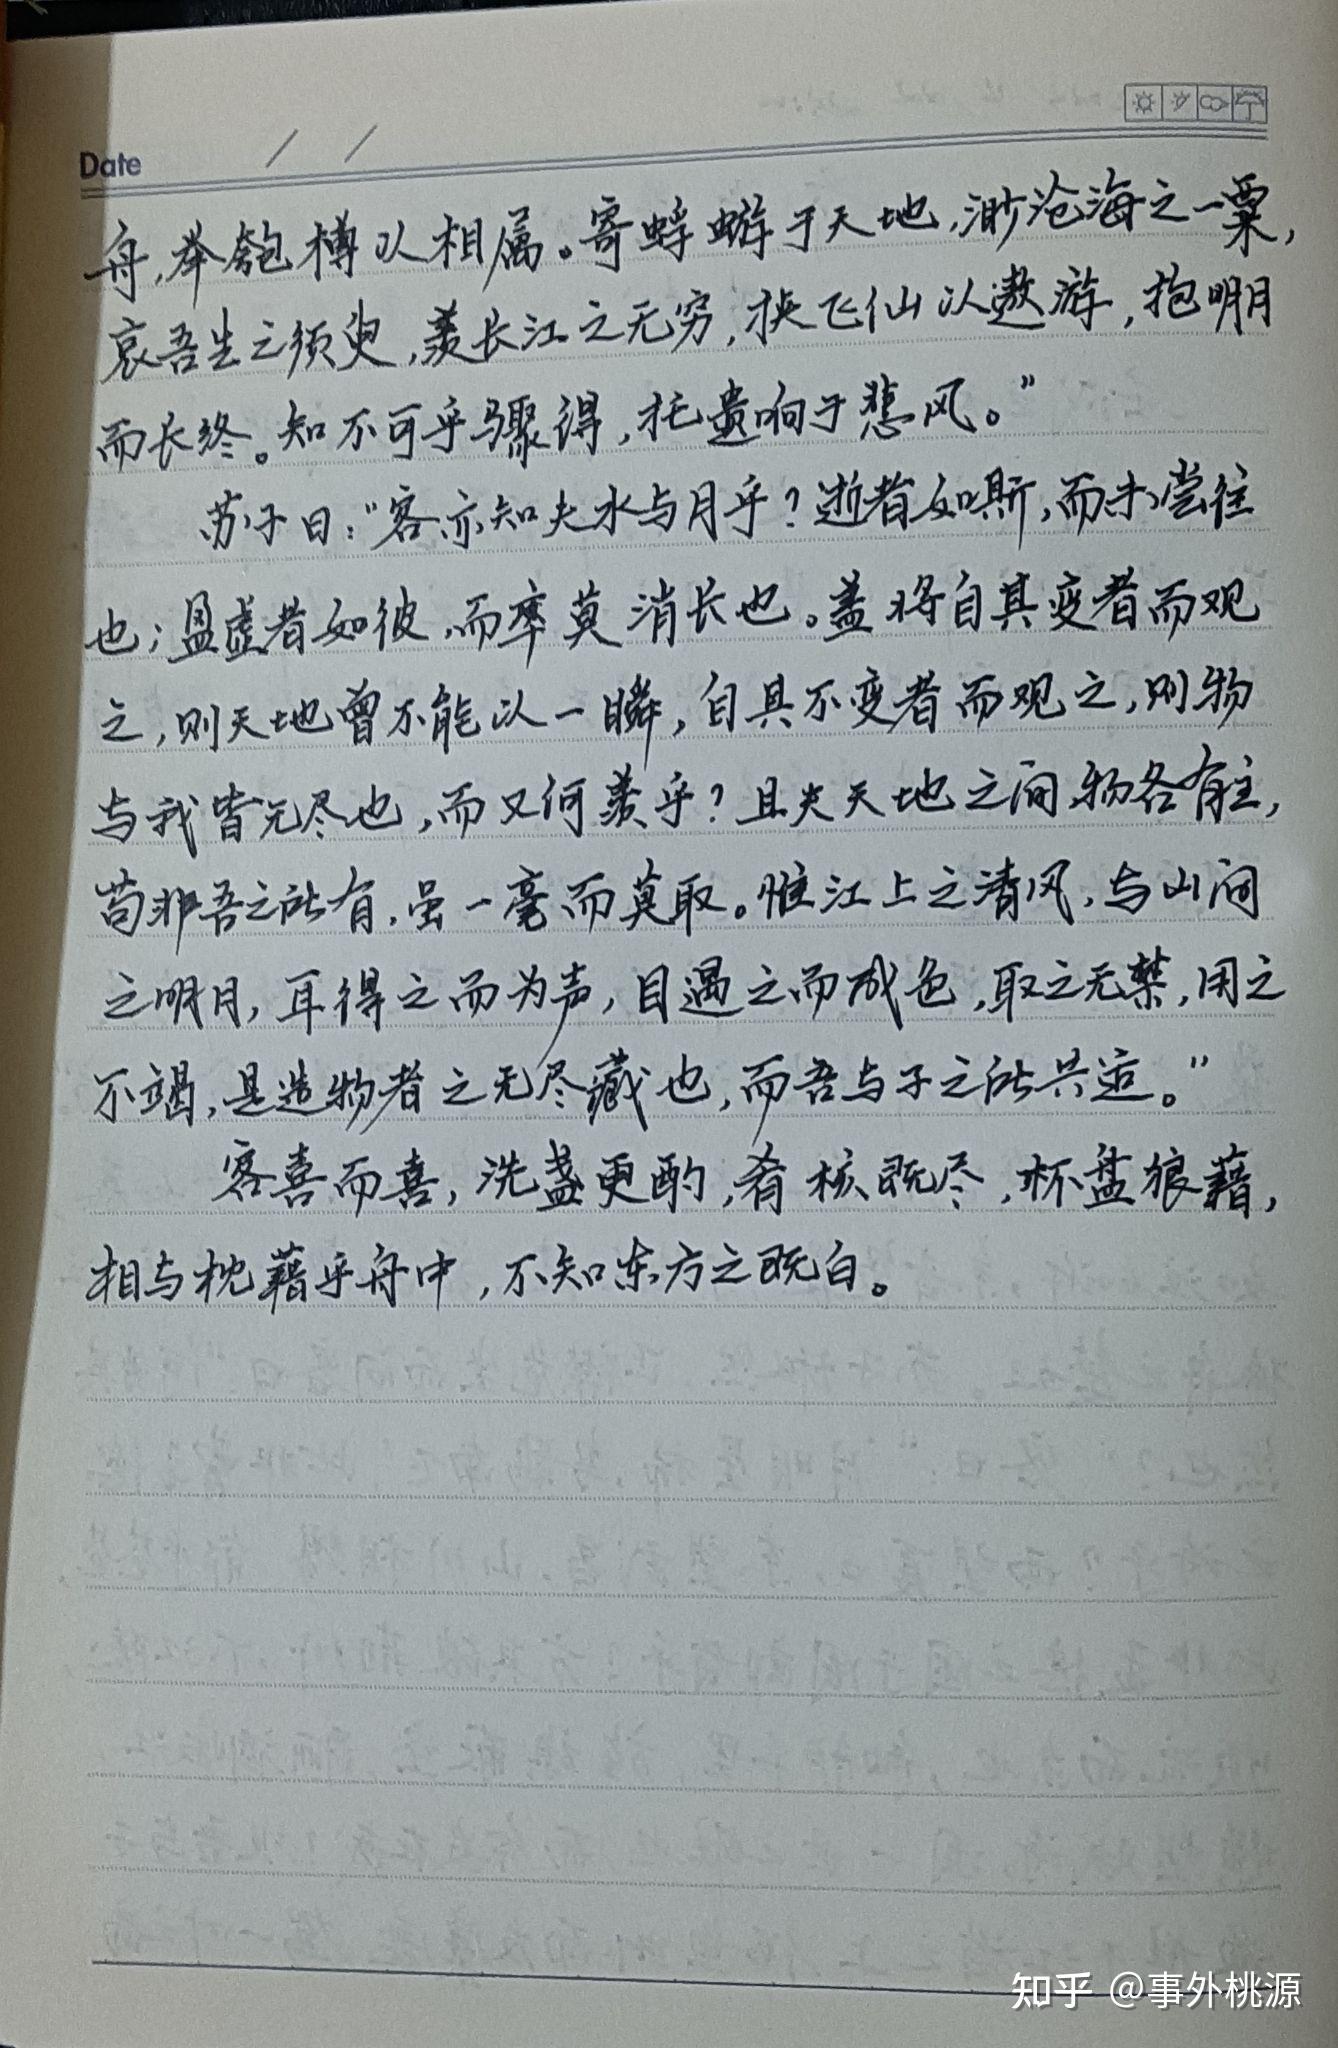 Date / /
舟，举匏樽以相属。寄蜉蝣于天地，渺沧海之一粟，
哀吾生之须臾，羡长江之无穷，挟飞仙以遨游，抱明月
而长终。知不可乎骤得，托遗响于悲风。”
苏子曰：“客亦知夫水与月乎？逝者如斯，而未尝往
也；盈虚者如彼，而卒莫消长也。盖将自其变者而观
之，则天地曾不能以一瞬，自其不变者而观之，则物
与我皆无尽也，而又何羡乎？且夫天地之间，物各有主，
苟非吾之所有，虽一毫而莫取。惟江上之清风，与山间
之明月，耳得之而为声，目遇之而成色，取之无禁，用之
不竭，是造物者之无尽藏也，而吾与子之所共适。”
客喜而喜，洗盏更酌，肴核既尽，杯盘狼藉，
相与枕藉乎舟中，不知东方之既白。
知乎 @事外桃源